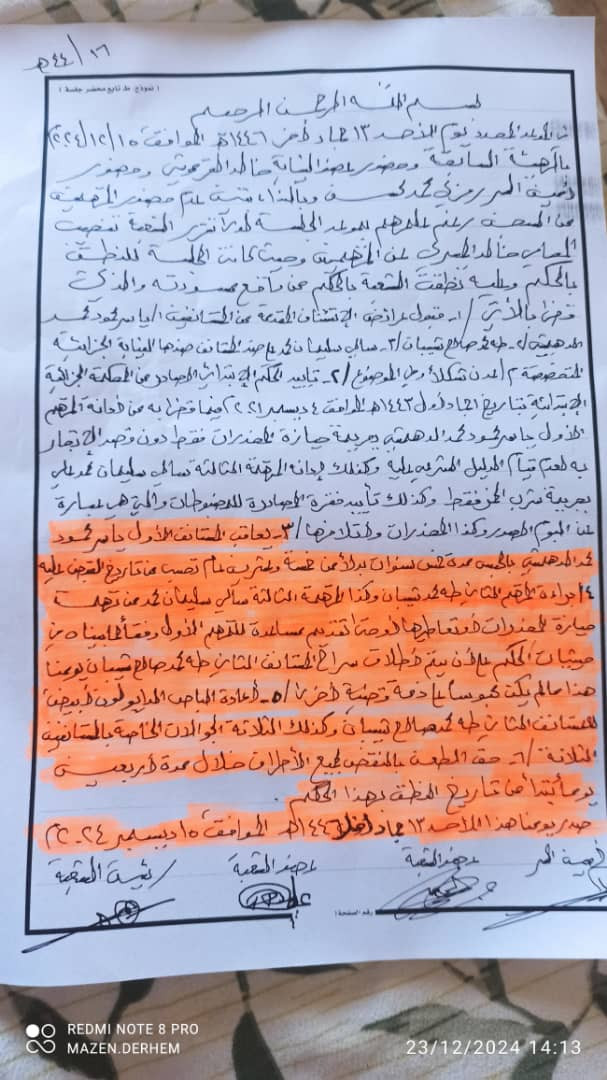 ١٦/٤٤هـ
(نموذج ط تابع محضر جلسة)
بسم الله الرحمن الرحيم
في الموعد المحدد يوم الأحد ١٣ جماد آخر ١٤٤٦هـ الموافق ١٥/١٢/٢٠٢٤م
بالهيئة السابقة وحضور عضو النيابة خالد وحضور
أمين السر رمزي محمد
المحامي خالد عن المتهمين وحيث كانت الجلسة للنطق
بالحكم وعليه نطقت الشعبة بالحكم من واقع مسودته والذي
قضى بالآتي/١- قبول عرائض الإستئناف المقدمة من المستأنفين ١/ياسر محمود محمد
الدهمشي ٢/طه محمد صالح شيبان/٣- سالي سليمان محمد علي ضد المستأنف ضدها النيابة الجزائية
المتخصصة م/عدن شكلاً وفي الموضوع/٢- تأييد الحكم الإبتدائي الصادر عن المحكمة الجزائية
الإبتدائية بتاريخ جماد أول ١٤٤٣هـ الموافق ٤ ديسمبر ٢٠٢١م فيما قضى به من إدانة المتهم
الأول ياسر محمود محمد الدهمشي بجريمة حيازة المخدرات فقط دون قصد الإتجار
به لعدم قيام الدليل الشرعي عليه وكذلك إدانة المتهمة الثالثة سالي سليمان محمد علي
بجريمة شرب الخمر فقط وكذلك تأييد فقرة المصادرة للمضبوطات والتي هي عبارة
عن وكذا المخدرات /٣- يعاقب المستأنف الأول ياسر محمود
محمد الدهمشي بالحبس مدة خمس سنوات بدلاً من خمسة وعشرين عام تحسب من تاريخ القبض عليه
٤/براءة المتهم الثاني طه محمد شيبان وكذا المتهمة الثالثة سالي سليمان محمد من تهمة
حيازة المخدرات أو تعاطيها أو حتى تقديم مساعدة للمتهم الأول وفقاً لما بيناه في
حيثيات الحكم على أن يتم إطلاق سراح المستأنف الثاني طه محمد صالح شيبان يومنا
هذا ما لم يكن محبوساً على ذمة قضية أخرى/٥- إعادة الباص لون أبيض
للمستأنف الثاني طه محمد صالح شيبان وكذلك الثلاثة الجوالات الخاصة بالمستأنفين
الثلاثة/٦- حق الطعن بالنقض لجميع الأطراف خلال مدة أربعين
يوماً يبدأ من تاريخ النطق بهذا الحكم.
صدر يومنا هذا الأحد ١٣ جماد آخر ١٤٤٦هـ الموافق ١٥ ديسمبر ٢٠٢٤م
أمين السر عضو الشعبة عضو الشعبة رئيس الشعبة
رقم الصفحة ( )
REDMI NOTE 8 PRO
MAZEN.DERHEM
23/12/2024 14:13